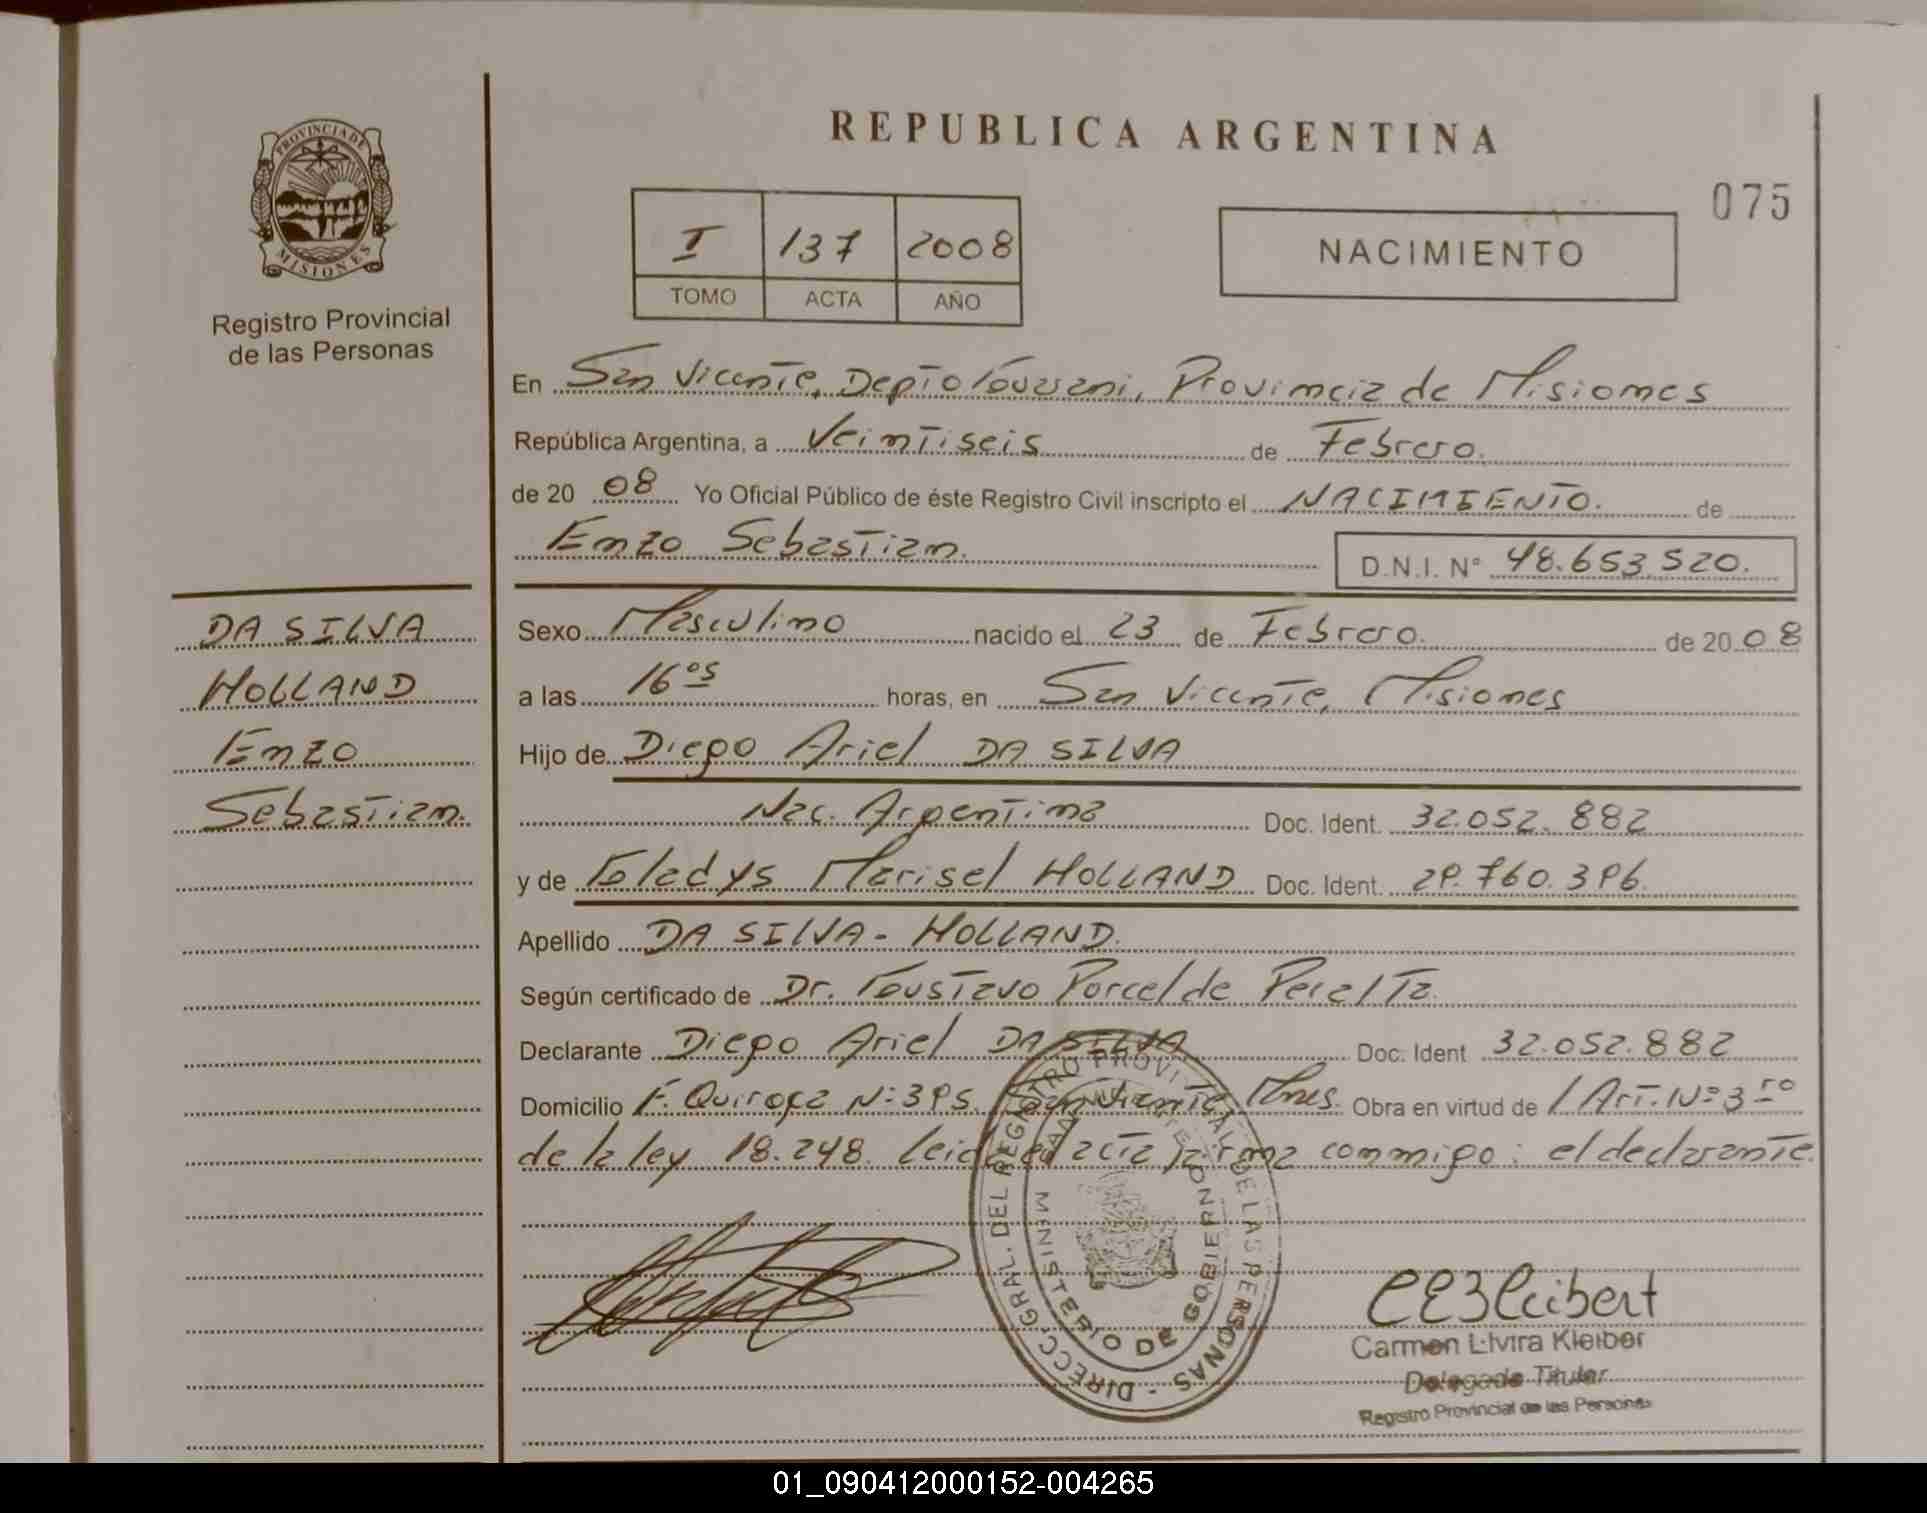 REPUBLICA ARGENTINA
075
PROVINCIA DE
MISIONES
Registro Provincial
de las Personas
I 137 2008
TOMO ACTA AÑO
NACIMIENTO
En San Vicente, Depto Guarani, Provincia de Misiones
República Argentina, a Veintiseis de Febrero.
de 20 08 Yo Oficial Público de éste Registro Civil inscripto el NACIMIENTO. de
Enzo Sebastian.
D.N.I. N° 48.653.520.
DA SILVA
HOLLAND
Enzo
Sebastian.
Sexo Masculino nacido el 23 de Febrero. de 20 08
a las 16 os horas, en San Vicente, Misiones
Hijo de Diego Ariel DA SILVA
Nac. Argentina Doc. Ident. 32.052.882
y de Gladys Marisel HOLLAND Doc. Ident. 29.760.396.
Apellido DA SILVA - HOLLAND.
Según certificado de Dr. Gustavo Porcel de Peralta.
Declarante Diego Ariel DA SILVA Doc. Ident 32.052.882
Domicilio F. Quiroga N: 395. San Vicente, Mnes. Obra en virtud de / Art. N° 3ro
de la ley 18.248. leida el acta firma conmigo: el declarante.
DIRECC. GRAL. DEL REGISTRO PROVINCIAL DE LAS PERSONAS -
SAN VICENTE
MINISTERIO DE GOBIERNO
CEKleibert
Carmen Elvira Kleiber
Delegado Titular
Registro Provincial de las Personas
01_090412000152-004265